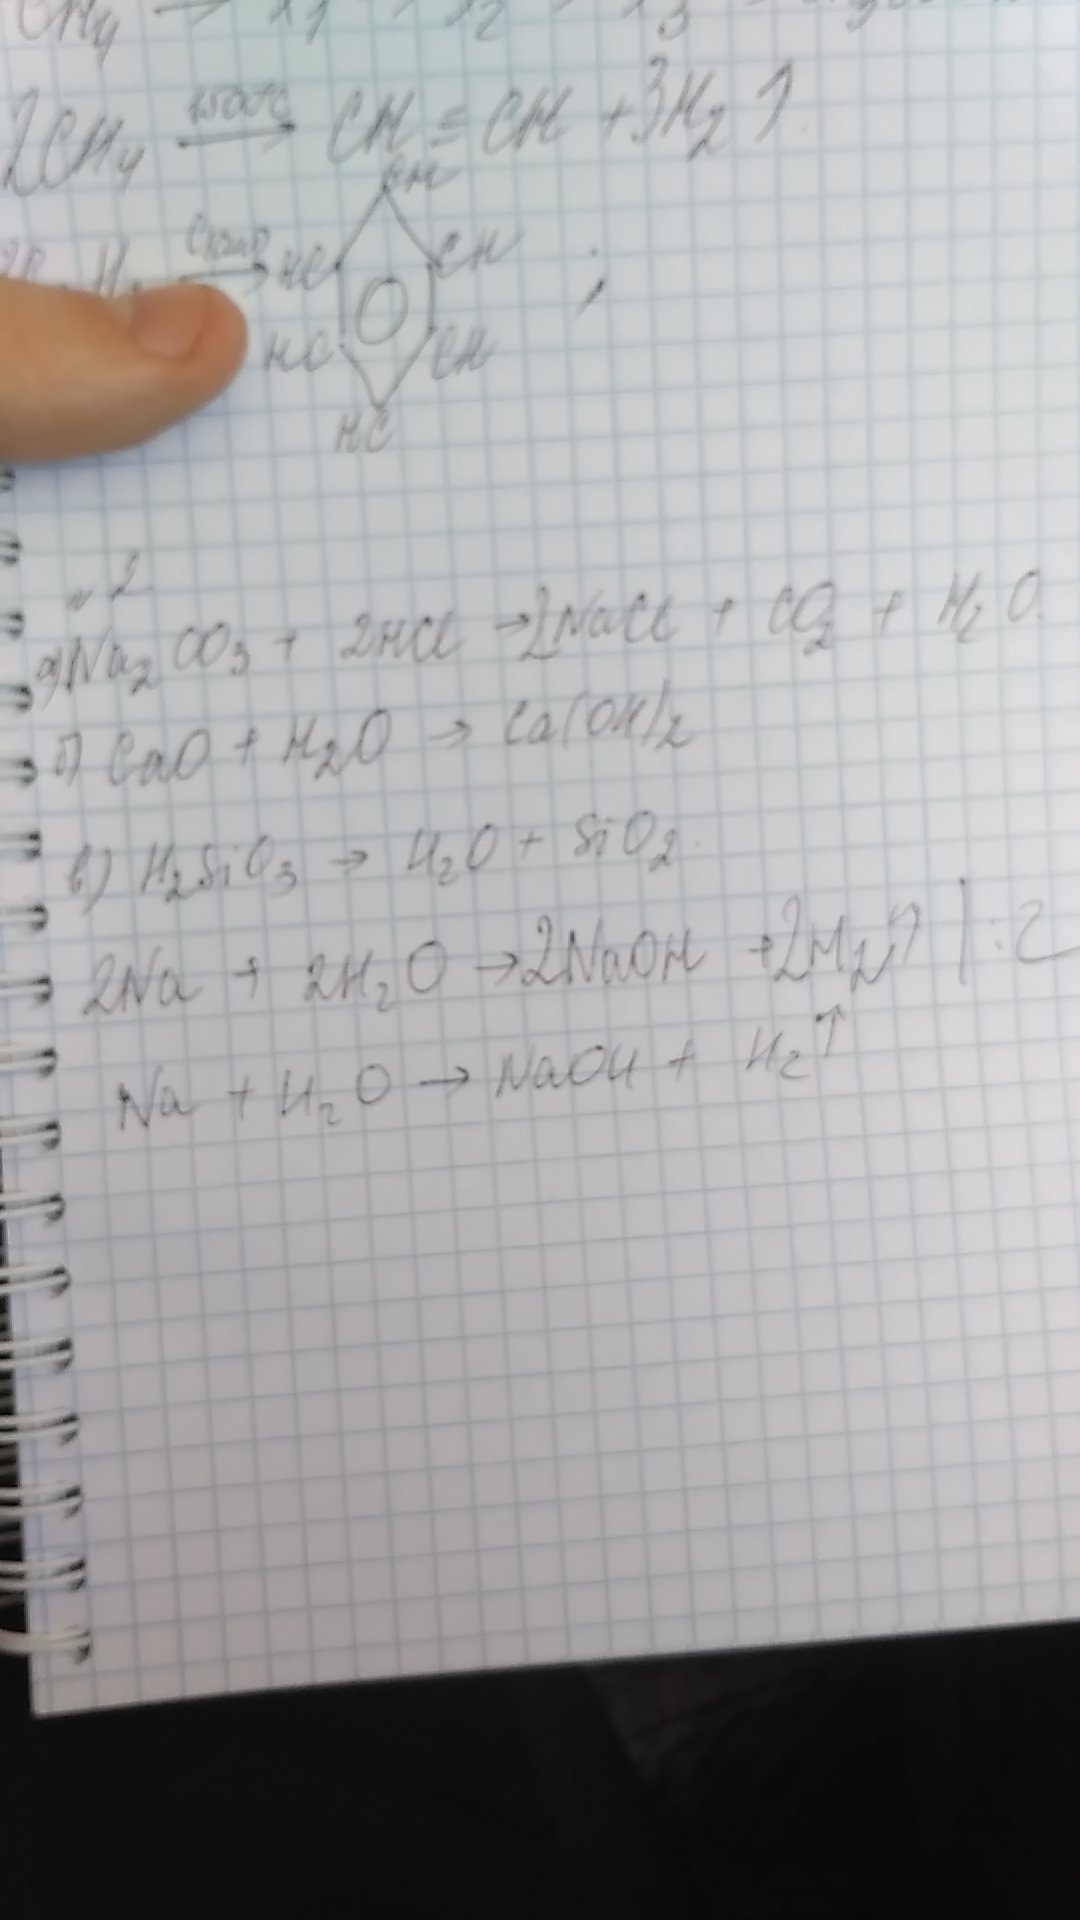 CH4 → X1 → X2 → X3
2CH4 1500°C → CH ≡ CH + 3H2 ↑
CH
HC CH ;
HC CH
HC
№2
а) Na2CO3 + 2HCl → 2NaCl + CO2 + H2O
б) CaO + H2O → Ca(OH)2
в) H2SiO3 → H2O + SiO2.
2Na + 2H2O → 2NaOH + 2H2↑ | : 2
Na + H2O → NaOH + H2↑